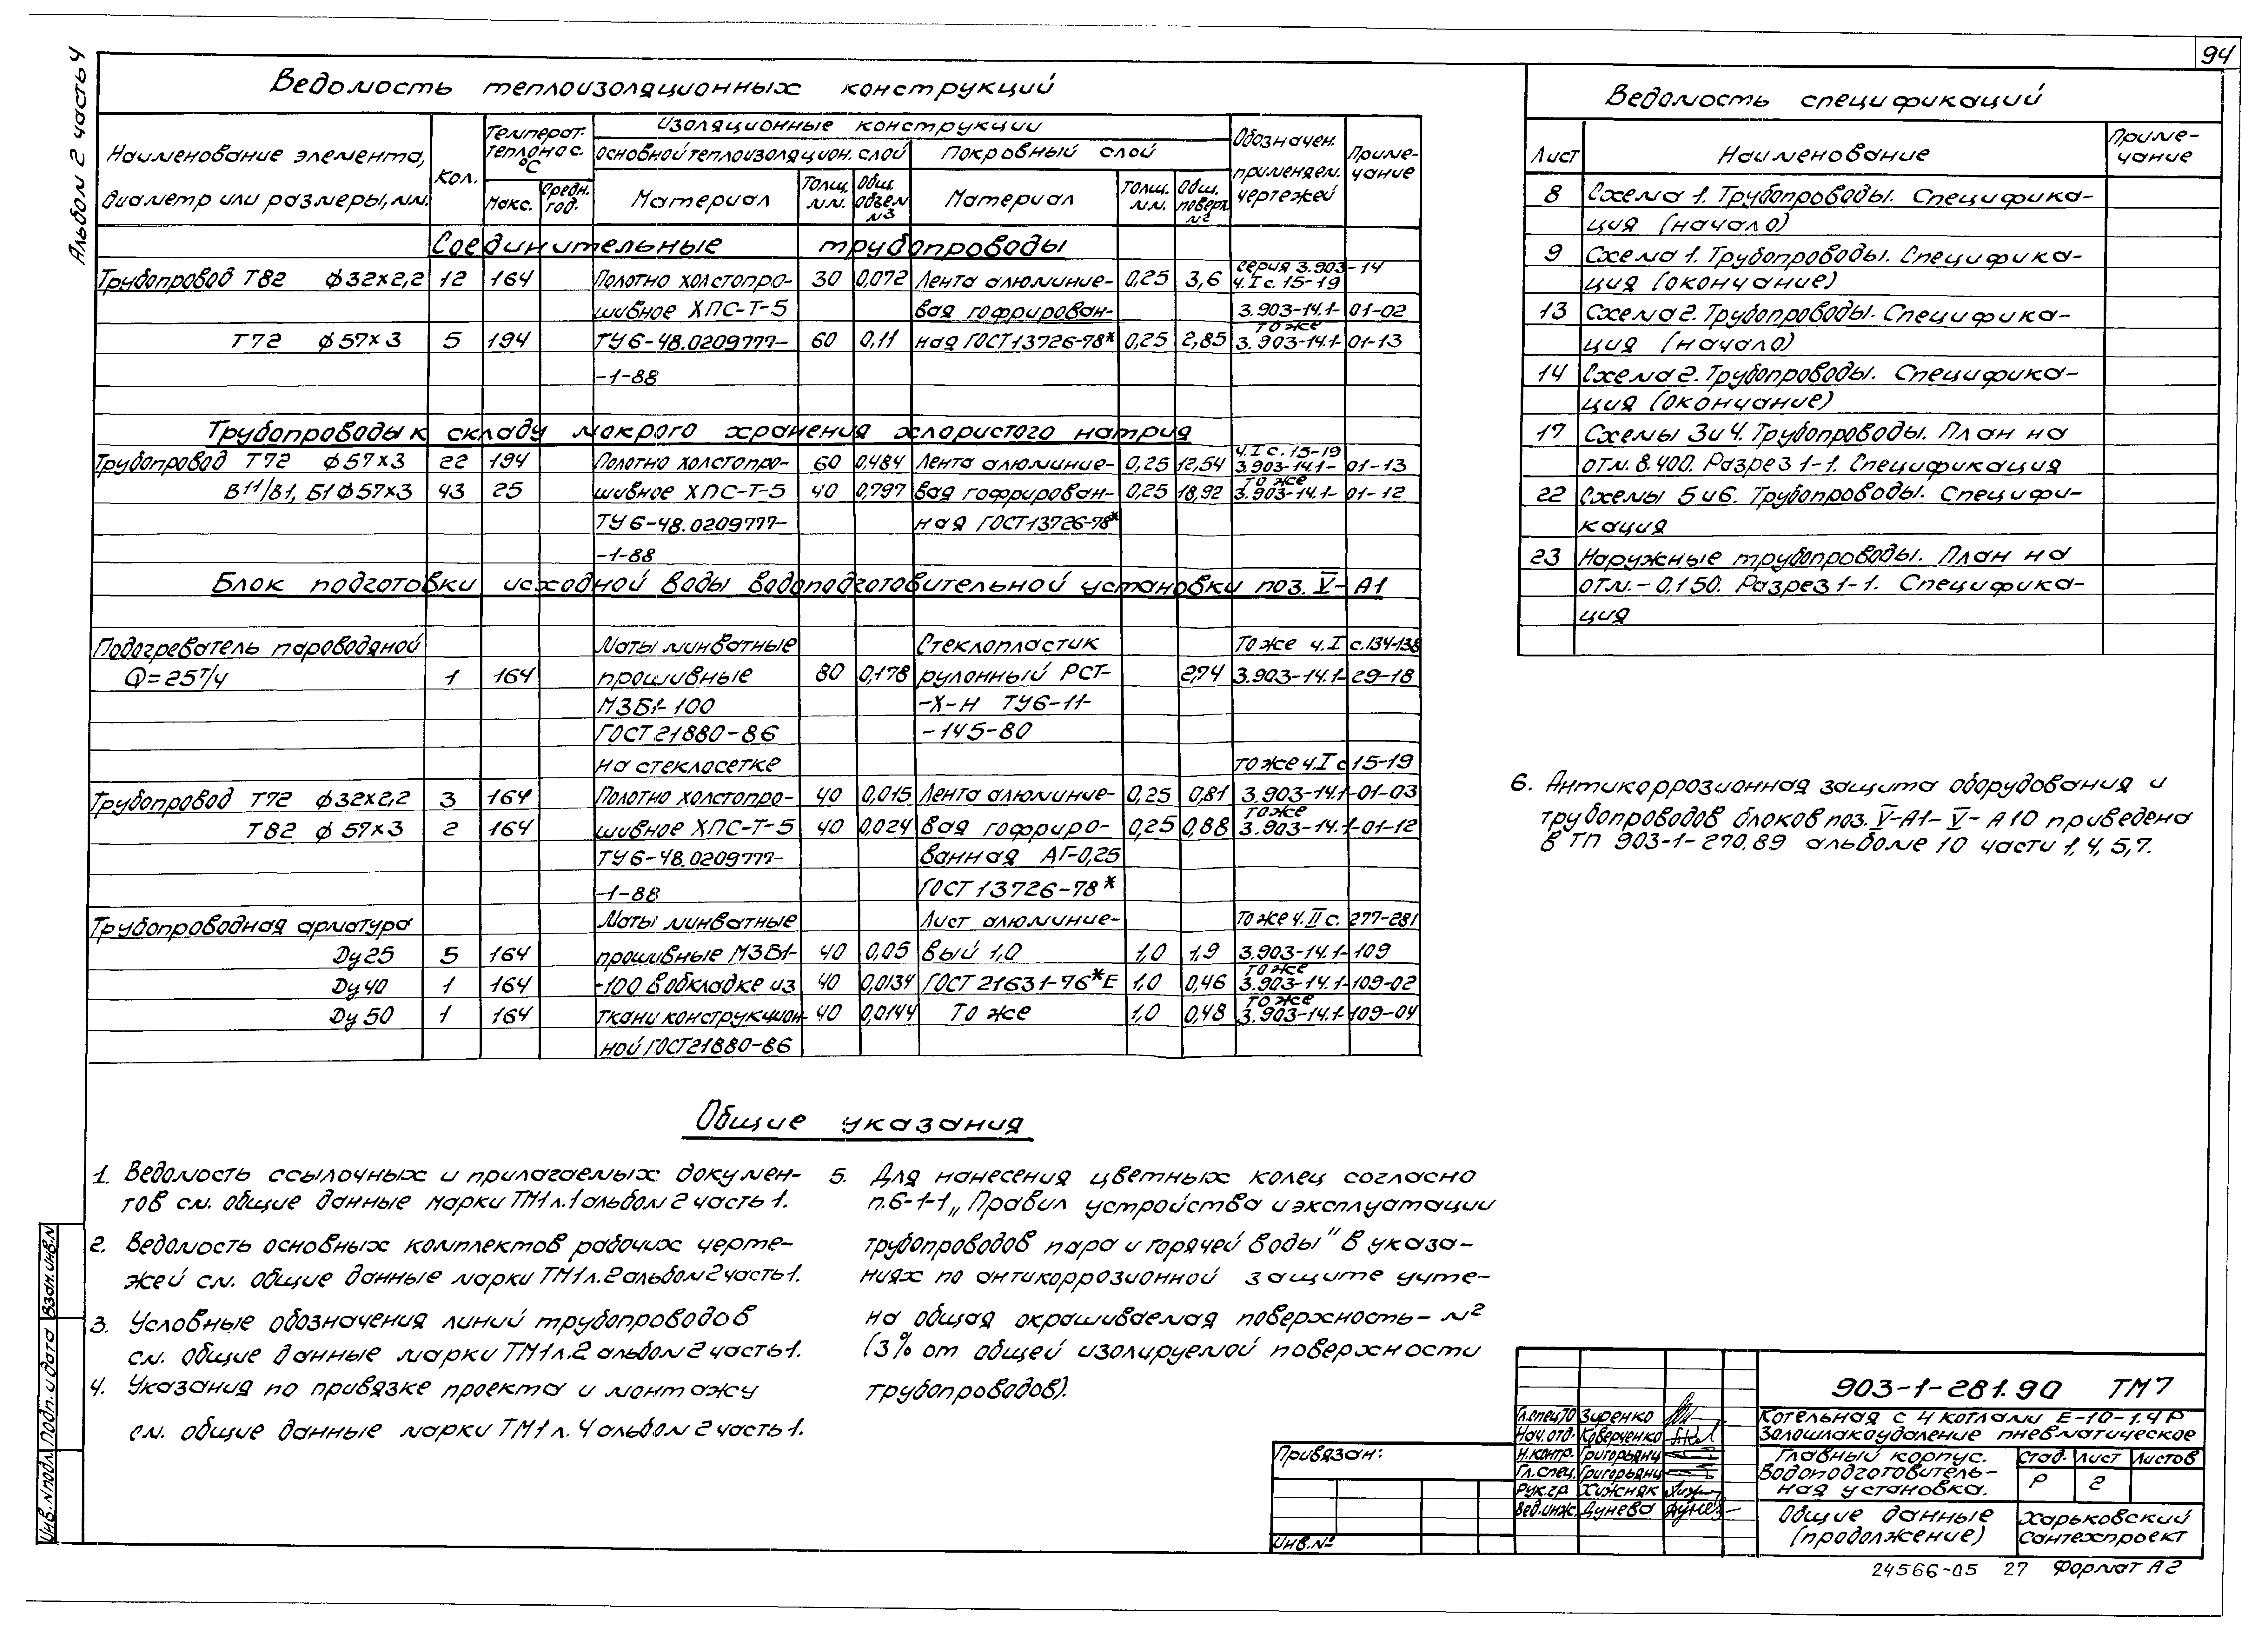 94
Альбом 2 часть 4
Ведомость теплоизоляционных конструкций
Наименование элемента, диаметр или размеры, мм.
Кол.
Температ. теплонос. °С
Макс.
Средн. год.
Изоляционные конструкции
Основной теплоизоляцион. слой
Покровный слой
Материал
Толщ. мм.
Общ. объем м3
Материал
Толщ. мм.
Общ. поверх. м2
Обозначен. применяем. чертежей
Примечание
Соединительные трубопроводы
серия 3.903-14
Трубопровод Т82 ф32х2,2 12 164 Полотно холстопро- 30 0,072 Лента алюминие- 0,25 3,6 ч.I с.15-19
шивное ХПС-Т-5 вая гофрирован- 3.903-14.1-01-02
то же
Т72 ф57х3 5 194 ТУ6-48.0209777- 60 0,11 ная ГОСТ13726-78* 0,25 2,85 3.903-14.1-01-13
-1-88
Трубопроводы к складу мокрого хранения хлористого натрия
ч.I с.15-19
Трубопровод Т72 ф57х3 22 194 Полотно холстопро- 60 0,484 Лента алюминие- 0,25 12,54 3.903-14.1-01-13
то же
В11/В1, Б1 ф57х3 43 25 шивное ХПС-Т-5 40 0,797 вая гофрирован- 0,25 18,92 3.903-14.1-01-12
ТУ6-48.0209777- ная ГОСТ13726-78*
-1-88
Блок подготовки исходной воды водоподготовительной установки поз. V-А1
Подогреватель пароводяной Маты минватные Стеклопластик То же ч.I с.134-138
Q=25т/ч 1 164 прошивные 80 0,178 рулонный РСТ- 2,74 3.903-14.1-29-18
М3Б1-100 -Х-Н ТУ6-11-
ГОСТ21880-86 -145-80
на стеклосетке то же ч.I с 15-19
Трубопровод Т72 ф32х2,2 3 164 Полотно холстопро- 40 0,015 Лента алюминие- 0,25 0,81 3.903-14.1-01-03
то же
Т82 ф57х3 2 164 шивное ХПС-Т-5 40 0,024 вая гофриро- 0,25 0,88 3.903-14.1-01-12
ТУ6-48.0209777- ванная АГ-0,25
-1-88 ГОСТ13726-78*
Трубопроводная арматура Маты минватные Лист алюминие- То же ч.II с. 277-281
Ду25 5 164 прошивные М3Б1- 40 0,05 вый 1,0 1,0 1,9 3.903-14.1-109
то же
Ду40 1 164 -100 в обкладке из 40 0,0134 ГОСТ 21631-76*Е 1,0 0,46 3.903-14.1-109-02
то же
Ду50 1 164 ткани конструкцион- 40 0,0144 То же 1,0 0,48 3.903-14.1-109-04
ной ГОСТ21880-86
Ведомость спецификаций
Лист Наименование Примечание
8 Схема 1. Трубопроводы. Специфика-
ция (начало)
9 Схема 1. Трубопроводы. Специфика-
ция (окончание)
13 Схема 2. Трубопроводы. Специфика-
ция (начало)
14 Схема 2. Трубопроводы. Специфика-
ция (окончание)
17 Схемы 3 и 4. Трубопроводы. План на
отм. 8.400. Разрез 1-1. Спецификация
22 Схемы 5 и 6. Трубопроводы. Специфи-
кация
23 Наружные трубопроводы. План на
отм. -0,150. Разрез 1-1. Специфика-
ция
Общие указания
1. Ведомость ссылочных и прилагаемых докумен-
тов см. общие данные марки ТМ1 л.1 альбом 2 часть 1.
2. Ведомость основных комплектов рабочих черте-
жей см. общие данные марки ТМ1 л.2 альбом 2 часть 1.
3. Условные обозначения линий трубопроводов
см. общие данные марки ТМ1 л.2 альбом 2 часть 1.
4. Указания по привязке проекта и монтажу
см. общие данные марки ТМ1 л.4 альбом 2 часть 1.
5. Для нанесения цветных колец согласно
п.6-1-1 „Правил устройства и эксплуатации
трубопроводов пара и горячей воды" в указа-
ниях по антикоррозионной защите учте-
на общая окрашиваемая поверхность - м2
(3% от общей изолируемой поверхности
трубопроводов).
6. Антикоррозионная защита оборудования и
трубопроводов блоков поз. V-А1- V- А10 приведена
в ТП 903-1-270.89 альбоме 10 части 1, 4, 5, 7.
Инв.№подл. Подп. и дата Взам.инв.№
Привязан:
Инв.№
Гл.спец ТО Зиренко
Нач.отд. Коверченко
Н.контр. Григорьянц
Гл.спец. Григорьянц
Рук.гр. Хижняк
Вед.инж. Дунева
903-1-281.90 ТМ7
Котельная с 4 котлами Е-10-1.4Р
Золошлакоудаление пневматическое
Главный корпус.
Водоподготовитель-
ная установка.
Стад. Лист Листов
Р 2
Общие данные
(продолжение)
Харьковский
Сантехпроект
24566-05 27 Формат А2